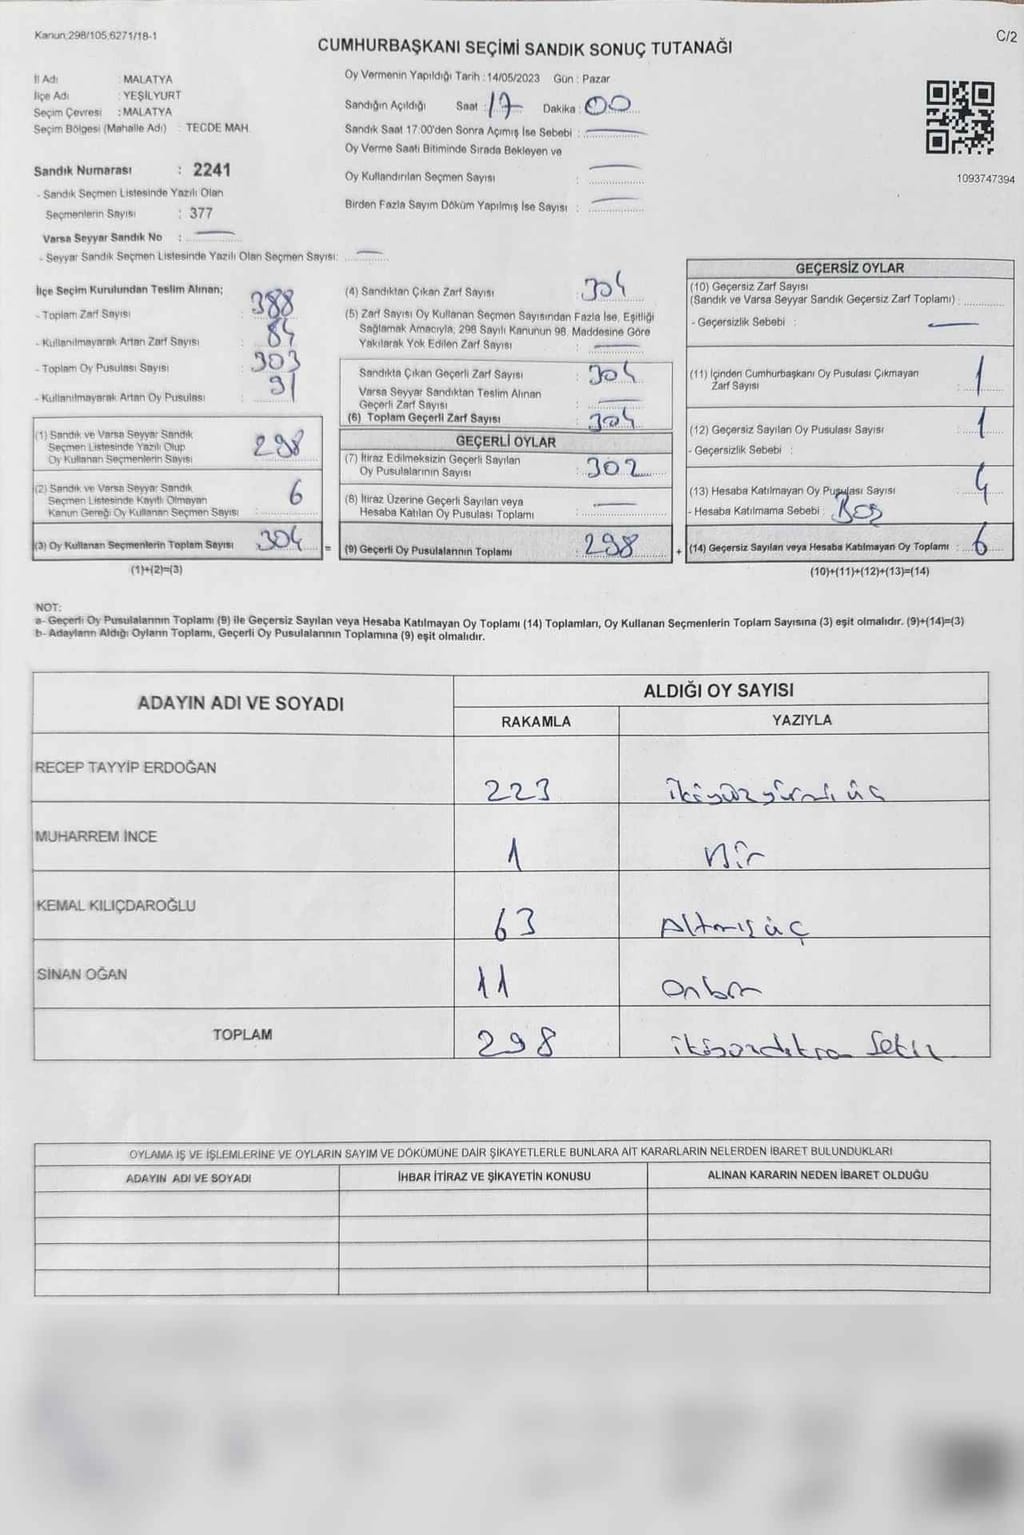 Kanun,298/105,6271/18-1
C/2
CUMHURBAŞKANI SEÇİMİ SANDIK SONUÇ TUTANAĞI
İl Adı : MALATYA
İlçe Adı : YEŞİLYURT
Seçim Çevresi : MALATYA
Seçim Bölgesi (Mahalle Adı) : TECDE MAH.
Sandık Numarası : 2241
- Sandık Seçmen Listesinde Yazılı Olan
Seçmenlerin Sayısı : 377
Varsa Seyyar Sandık No :
- Seyyar Sandık Seçmen Listesinde Yazılı Olan Seçmen Sayısı:
Oy Vermenin Yapıldığı Tarih : 14/05/2023 Gün : Pazar
Sandığın Açıldığı Saat : 17 Dakika : 00
Sandık Saat 17:00'den Sonra Açımış İse Sebebi :
Oy Verme Saati Bitiminde Sırada Bekleyen ve
Oy Kullandırılan Seçmen Sayısı :
Birden Fazla Sayım Döküm Yapılmış İse Sayısı :
1093747394
İlçe Seçim Kurulundan Teslim Alınan;
- Toplam Zarf Sayısı : 388
- Kullanılmayarak Artan Zarf Sayısı : 84
- Toplam Oy Pusulası Sayısı : 303
- Kullanılmayarak Artan Oy Pusulası : 91
(1) Sandık ve Varsa Seyyar Sandık
Seçmen Listesinde Yazılı Olup
Oy Kullanan Seçmenlerin Sayısı : 298
(2) Sandık ve Varsa Seyyar Sandık
Seçmen Listesinde Kayıtlı Olmayan
Kanun Gereği Oy Kullanan Seçmen Sayısı : 6
(3) Oy Kullanan Seçmenlerin Toplam Sayısı 304
(1)+(2)=(3)
=
(4) Sandıktan Çıkan Zarf Sayısı : 304
(5) Zarf Sayısı Oy Kullanan Seçmen Sayısından Fazla İse, Eşitliği
Sağlamak Amacıyla, 298 Sayılı Kanunun 98. Maddesine Göre
Yakılarak Yok Edilen Zarf Sayısı :
Sandıkta Çıkan Geçerli Zarf Sayısı : 304
Varsa Seyyar Sandıktan Teslim Alınan
Geçerli Zarf Sayısı :
(6) Toplam Geçerli Zarf Sayısı : 304
GEÇERLİ OYLAR
(7) İtiraz Edilmeksizin Geçerli Sayılan
Oy Pusulalarının Sayısı : 302
(8) İtiraz Üzerine Geçerli Sayılan veya
Hesaba Katılan Oy Pusulası Toplamı :
(9) Geçerli Oy Pusulalarının Toplamı : 298
+
GEÇERSİZ OYLAR
(10) Geçersiz Zarf Sayısı
(Sandık ve Varsa Seyyar Sandık Geçersiz Zarf Toplamı) :
- Geçersizlik Sebebi :
(11) İçinden Cumhurbaşkanı Oy Pusulası Çıkmayan
Zarf Sayısı : 1
(12) Geçersiz Sayılan Oy Pusulası Sayısı : 1
- Geçersizlik Sebebi :
(13) Hesaba Katılmayan Oy Pusulası Sayısı : 4
- Hesaba Katılmama Sebebi : Boş
(14) Geçersiz Sayılan veya Hesaba Katılmayan Oy Toplamı : 6
(10)+(11)+(12)+(13)=(14)
NOT:
a- Geçerli Oy Pusulalarının Toplamı (9) ile Geçersiz Sayılan veya Hesaba Katılmayan Oy Toplamı (14) Toplamları, Oy Kullanan Seçmenlerin Toplam Sayısına (3) eşit olmalıdır. (9)+(14)=(3)
b- Adayların Aldığı Oyların Toplamı, Geçerli Oy Pusulalarının Toplamına (9) eşit olmalıdır.
ADAYIN ADI VE SOYADI ALDIĞI OY SAYISI
RAKAMLA YAZIYLA
RECEP TAYYİP ERDOĞAN 223 ikiyüzyirmi üç
MUHARREM İNCE 1 Bir
KEMAL KILIÇDAROĞLU 63 Altmışüç
SİNAN OĞAN 11 Onbir
TOPLAM 298 ikiyüzdoksan Sekiz
OYLAMA İŞ VE İŞLEMLERİNE VE OYLARIN SAYIM VE DÖKÜMÜNE DAİR ŞİKAYETLERLE BUNLARA AİT KARARLARIN NELERDEN İBARET BULUNDUKLARI
ADAYIN ADI VE SOYADI İHBAR İTİRAZ VE ŞİKAYETİN KONUSU ALINAN KARARIN NEDEN İBARET OLDUĞU